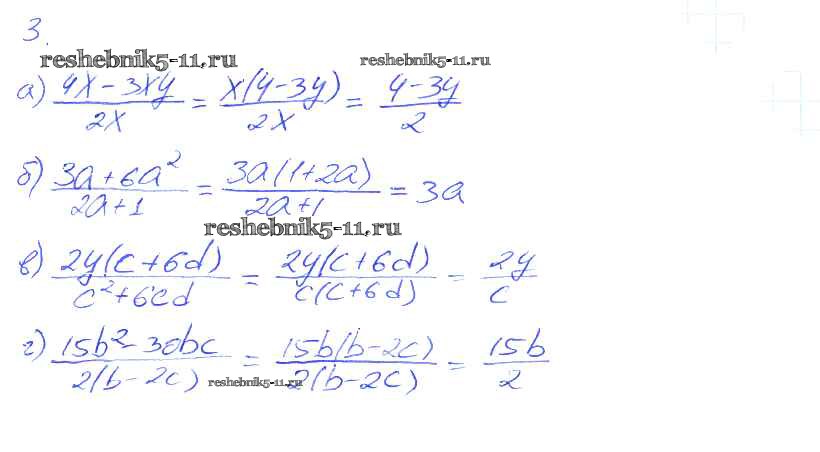 3.
reshebnik5-11.ru reshebnik5-11.ru
а) (4x - 3xy)/(2x) = x(4 - 3y)/(2x) = (4 - 3y)/2
б) (3a + 6a²)/(2a + 1) = 3a(1 + 2a)/(2a + 1) = 3a
reshebnik5-11.ru
в) 2y(c + 6d)/(c² + 6cd) = 2y(c + 6d)/(c(c + 6d)) = 2y/c
г) (15b² - 30bc)/(2(b - 2c)) = 15b(b - 2c)/(2(b - 2c)) = 15b/2
reshebnik5-11.ru